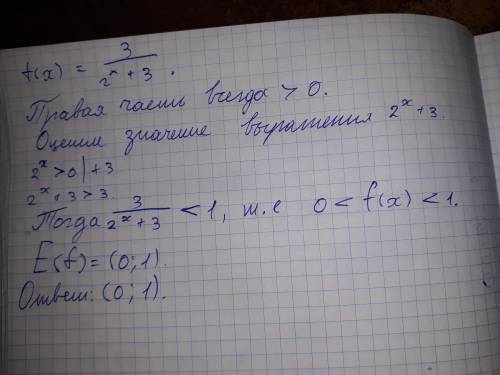 f(x) = 3/(2^x + 3).
Правая часть всегда > 0.
Оценим значение выражения 2^x + 3.
2^x > 0 | + 3
2^x + 3 > 3.
Тогда 3/(2^x + 3) < 1, т.е 0 < f(x) < 1.
E(f) = (0; 1).
Ответ: (0; 1).